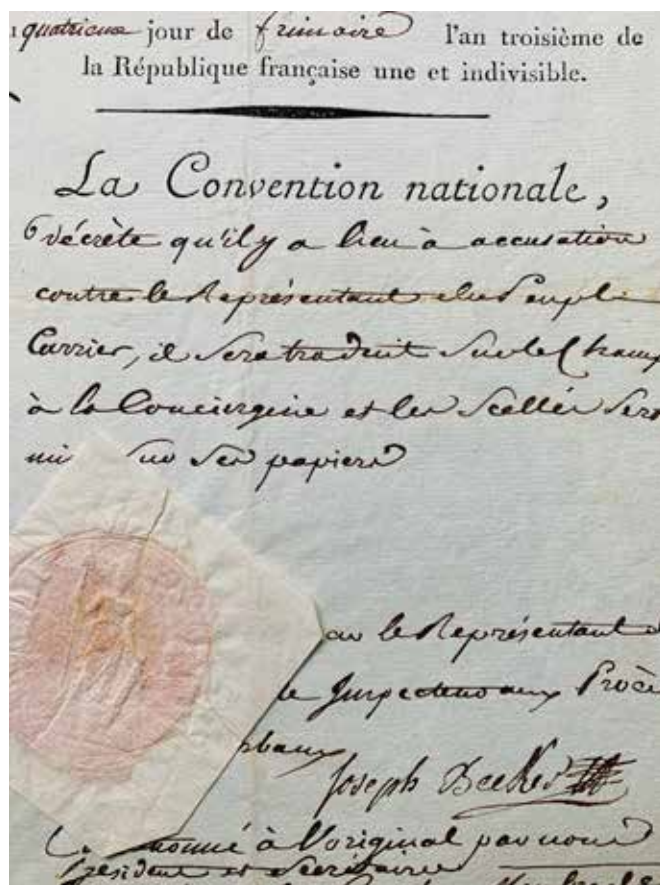 quatrieme jour de frimaire l'an troisième de
la République française une et indivisible.
La Convention nationale,
décrète qu'il y a lieu à accusation
contre le Représentant du Peuple
Carrier, il sera traduit sur le Champ
à la Conciergerie et les Scellés
mis sur ses papiers
le Représentant
Inspecteur aux Procè
rbaux
Joseph Becker
à l'original par nous
Président et Secrétaires